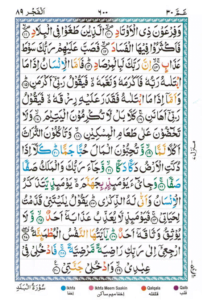 عَمَّ ٣٠ ٦٠٠ اَلْفَجْر ٨٩
وَفِرْعَوْنَ ذِى الْاَوْتَادِ الَّذِيْنَ طَغَوْا فِى الْبِلَادِ
فَاَكْثَرُوْا فِيْهَا الْفَسَادَ فَصَبَّ عَلَيْهِمْ رَبُّكَ سَوْطَ
عَذَابٍ اِنَّ رَبَّكَ لَبِالْمِرْصَادِ فَاَمَّا الْاِنْسَانُ اِذَا مَا
ابْتَلٰىهُ رَبُّهٗ فَاَكْرَمَهٗ وَنَعَّمَهٗ فَيَقُوْلُ رَبِّىْۤ اَكْرَمَنِ
وَاَمَّاۤ اِذَا مَا ابْتَلٰىهُ فَقَدَرَ عَلَيْهِ رِزْقَهٗ فَيَقُوْلُ
رَبِّىْۤ اَهَانَنِ كَلَّا بَلْ لَّا تُكْرِمُوْنَ الْيَتِيْمَ وَلَا
تَحٰٓضُّوْنَ عَلٰى طَعَامِ الْمِسْكِيْنِ وَتَاْكُلُوْنَ التُّرَاثَ
اَكْلًا لَّمًّا وَّتُحِبُّوْنَ الْمَالَ حُبًّا جَمًّا كَلَّاۤ اِذَا
دُكَّتِ الْاَرْضُ دَكًّا دَكًّا وَّجَآءَ رَبُّكَ وَالْمَلَكُ صَفًّا
صَفًّا وَجِاىْٓءَ يَوْمَئِذٍۢ بِجَهَنَّمَ يَوْمَئِذٍ يَّتَذَكَّرُ
الْاِنْسَانُ وَاَنّٰى لَهُ الذِّكْرٰى يَقُوْلُ يٰلَيْتَنِىْ قَدَّمْتُ
لِحَيَاتِىْ فَيَوْمَئِذٍ لَّا يُعَذِّبُ عَذَابَهٗۤ اَحَدٌ وَّلَا
يُوْثِقُ وَثَاقَهٗۤ اَحَدٌ يٰۤاَيَّتُهَا النَّفْسُ الْمُطْمَئِنَّةُ
ارْجِعِىْۤ اِلٰى رَبِّكِ رَاضِيَةً مَّرْضِيَّةً فَادْخُلِىْ فِىْ
عِبٰدِىْ وَادْخُلِىْ جَنَّتِىْ
سُوْرَةُ الْبَلَدِ Ikhfa Ikhfa Meem Saakin Qalqala